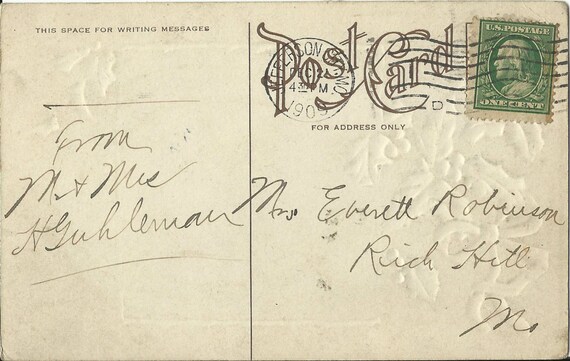 THIS SPACE FOR WRITING MESSAGES
Post Card
JEFFERSON CITY, MO.
4 PM
1909
D
U.S. POSTAGE
ONE CENT
FOR ADDRESS ONLY
From
Mr & Mrs
H Guhleman
Mrs. Everett Robinson
Rich Hill
Mo